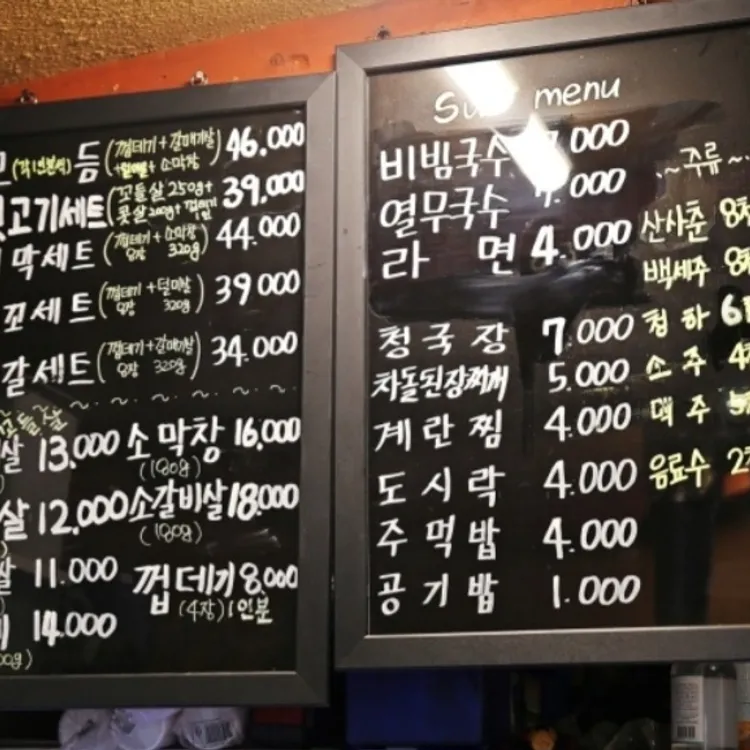 (각1인분씩) 듬 (껍데기+갈매기살 + 소막창) 46.000
고기세트 (꼬들살 250g+ 39.000
막세트 (껍데기+소막창 8장 320g) 44.000
꼬세트 (껍데기+덜미살 8장 320g) 39000
갈세트 (껍데기+갈매기살 8장 320g) 34.000
살 13.000 소막창 16.000
(180g)
살 12.000 소갈비살 18.000
(180g)
살 11.000 껍데기 8.000
(4장) 1인분
14.000
menu
비빔국수 000
열무국수 000
라면 4.000
청국장 7.000
차돌된장찌개 5.000
계란찜 4.000
도시락 4.000
주먹밥 4.000
공기밥 1.000
~주류~
산사춘 8
백세주 8
청하 6
소주 4
맥주
음료수 2